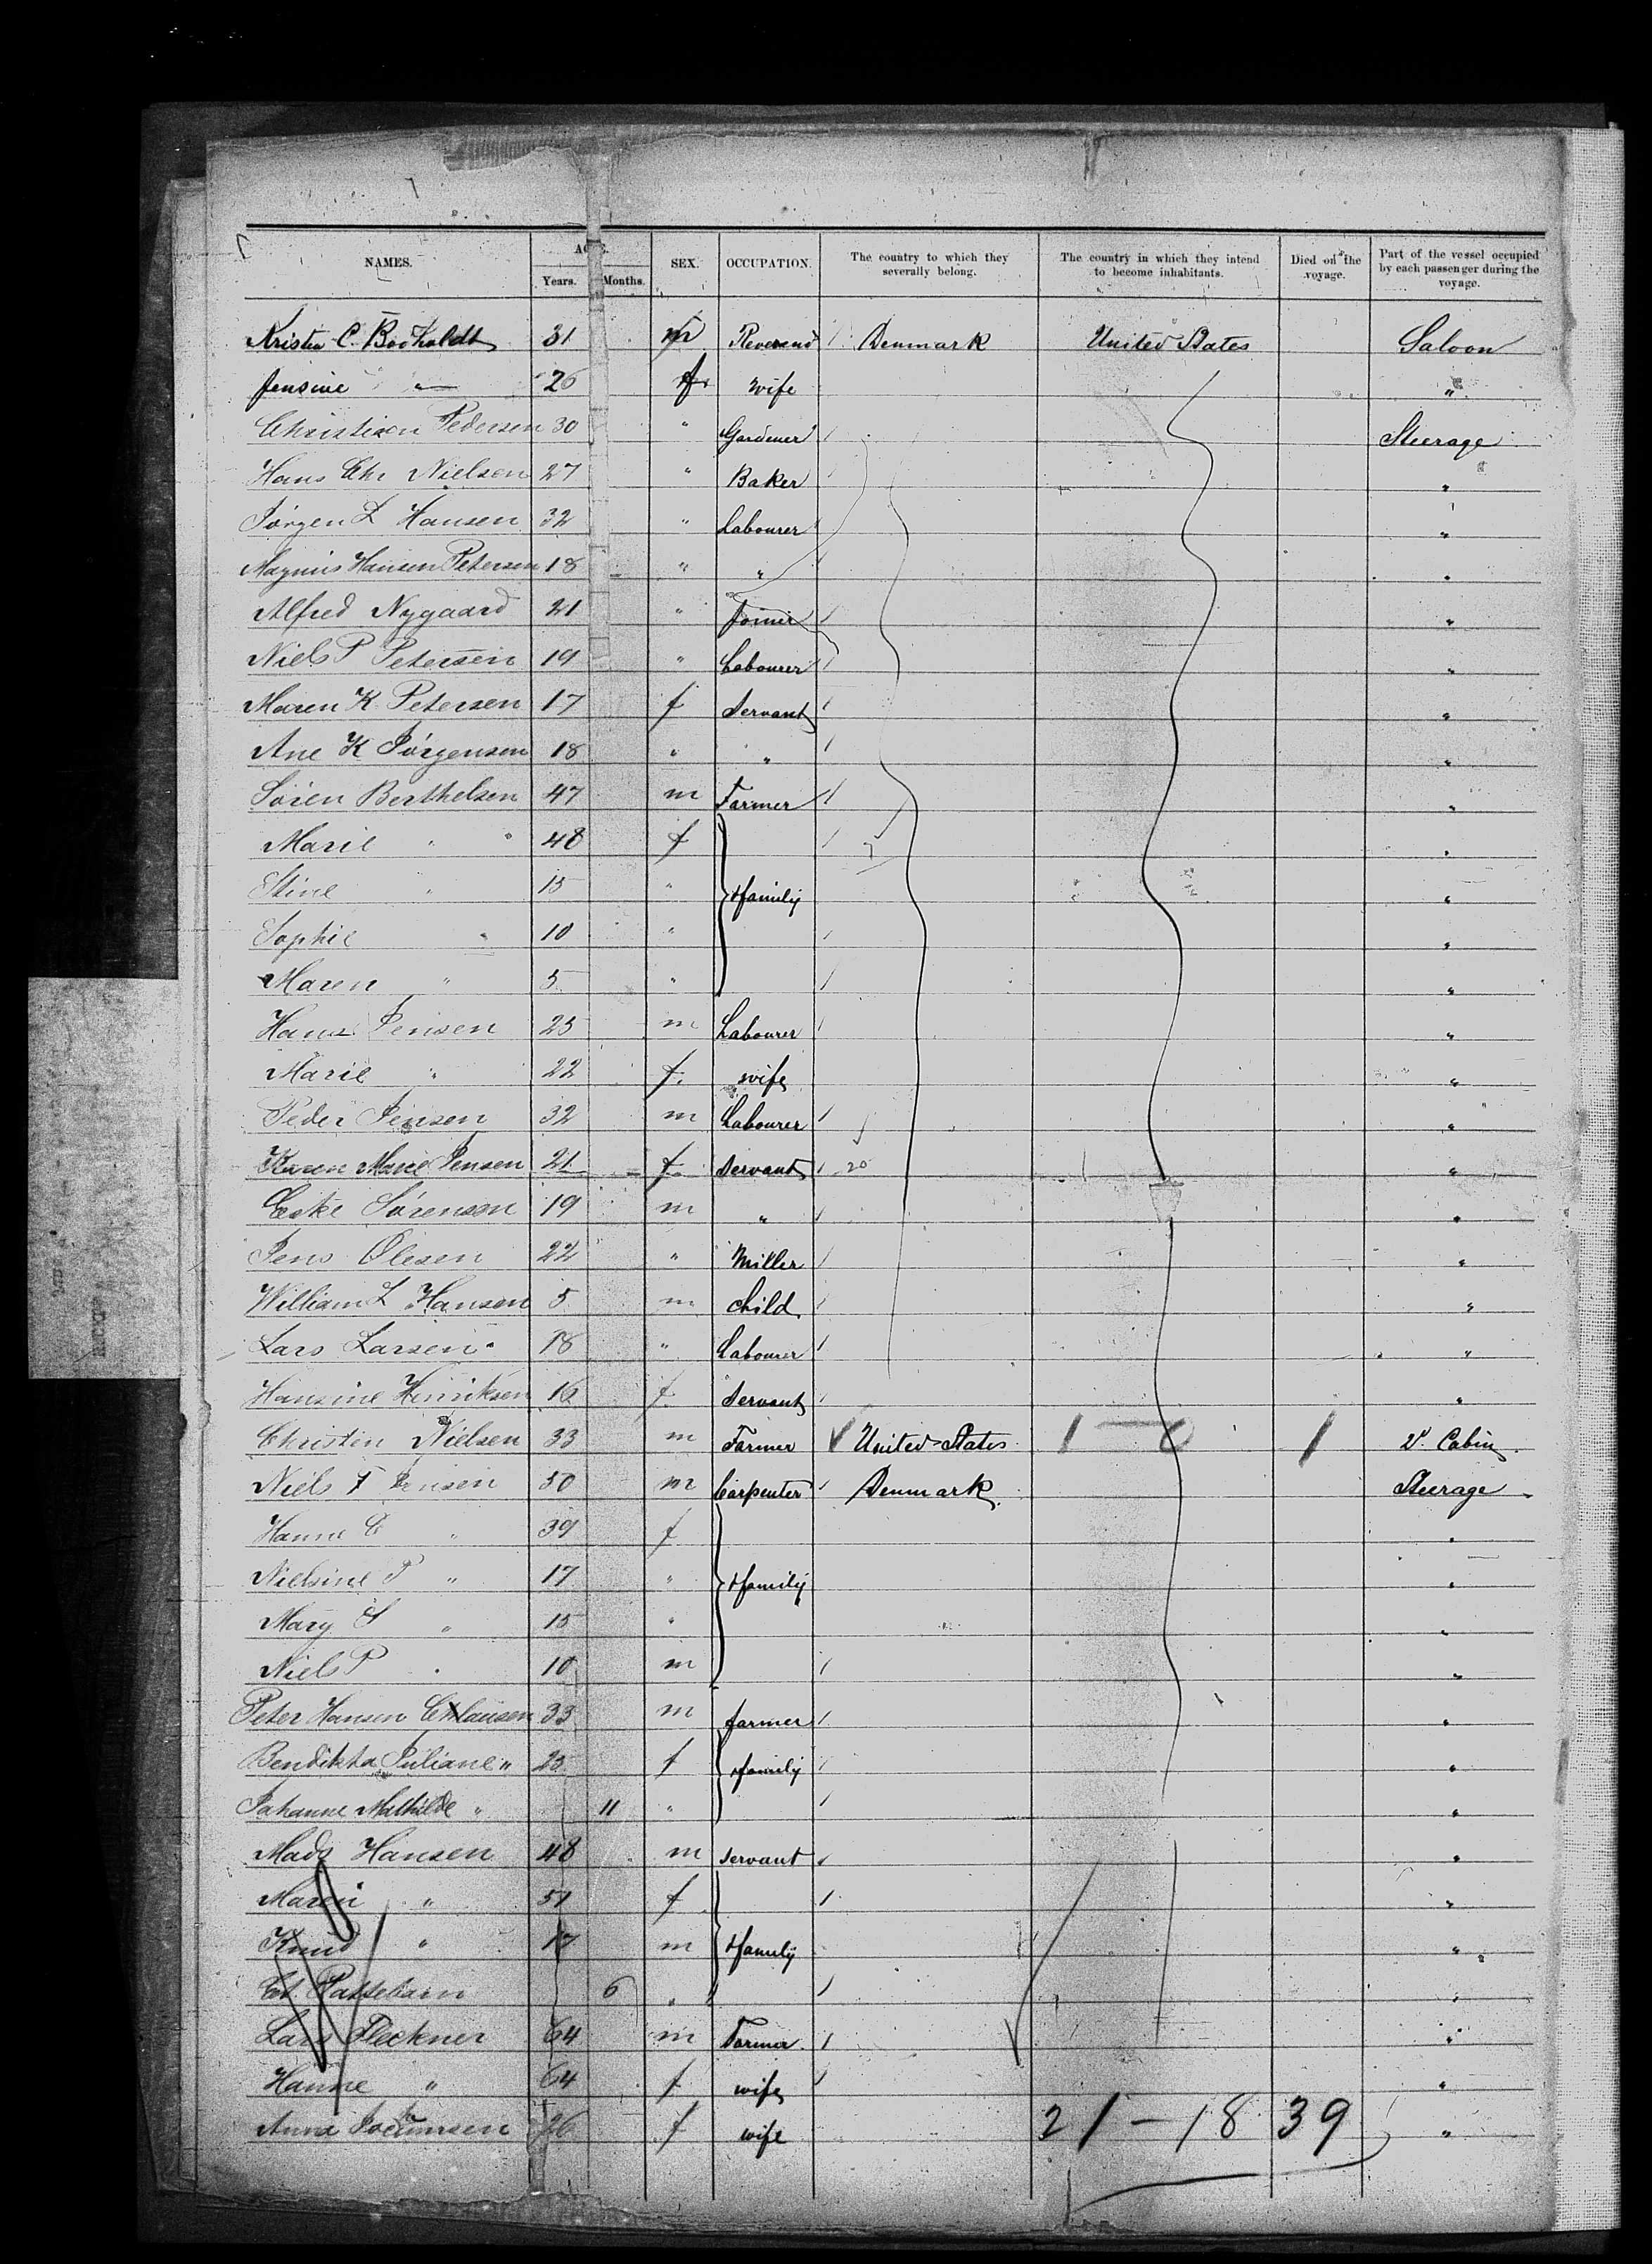 NAMES. AGE. SEX. OCCUPATION. The country to which they severally belong. The country in which they intend to become inhabitants. Died on the voyage. Part of the vessel occupied by each passenger during the voyage.
Years. Months.
Kristen C. Bodholdt 31 m Reverend Denmark United States Saloon
Jensine " 26 f wife "
Christian Pedersen 30 " Gardener Steerage
Hans Chr Nielsen 27 " Baker "
Jørgen L Hansen 32 " Labourer "
Magnus Hansen Petersen 18 " " "
Alfred Nygaard 21 " Joiner "
Niels P Petersen 19 " Labourer "
Maren K Petersen 17 f Servant "
Ane K Jørgensen 18 " " "
Søren Berthelsen 47 m Farmer "
Marie " " 48 f "
Stine " 15 " + family "
Sophie " 10 " "
Maren " 5 " "
Hans Jensen 25 m Labourer "
Marie " 22 f. wife "
Peder Jensen 32 m Labourer "
Karen Marie Jensen 21 f Servant 20 "
Eske Sørensen 19 m " "
Jens Olesen 22 " Miller "
William L Hansen 5 m child "
Lars Larsen 18 " Labourer "
Hansine Henriksen 16 f Servant "
Christen Nielsen 33 m Farmer United States 1 - 0 1 2d. Cabin
Niels F Jensen 50 m Carpenter Denmark Steerage
Hanne C " 39 f "
Nielsine P " 17 " + family "
Mary S " 15 " "
Niels P " 10 m "
Peter Hansen Clausen 33 m farmer "
Bendikta Juliane " 25 f + family "
Johanne Mathilde " 11 " "
Mads Hansen 48 m servant "
Maren " 51 f "
Knud " 17 m + family "
6 " "
Lars Fleckner 64 m Farmer "
Hanne " 64 f wife "
Anna 26 f wife 21 - 18 39 "